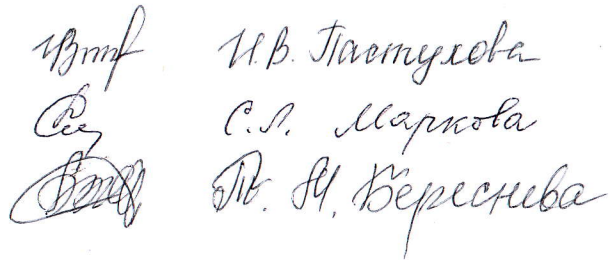 И.В. Пастухова
С.Л. Маркова
Т. М. Береснева